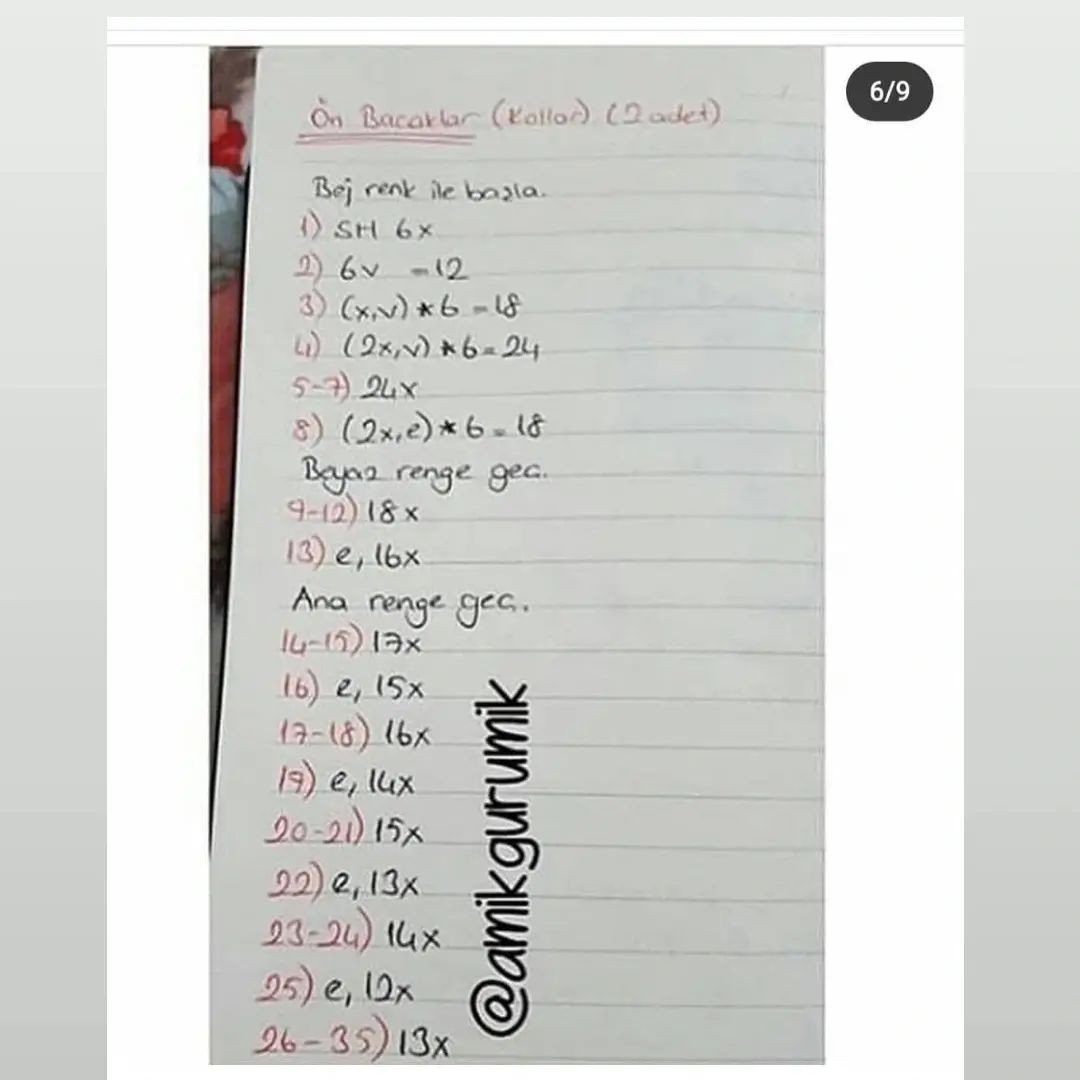 6/9
Ön Bacaklar (Kollar) (2 adet)
Bej renk ile başla.
1) SH 6x
2) 6v =12
3) (x,v)*6=18
4) (2x,v)*6=24
5-7) 24x
8) (2x,e)*6=18
Beyaz renge geç.
9-12) 18x
13) e, 16x
Ana renge geç.
14-15) 17x
16) e, 15x
17-18) 16x
19) e, 14x
20-21) 15x
22) e, 13x
23-24) 14x
25) e, 12x
26-35) 13x
@amikgurumik